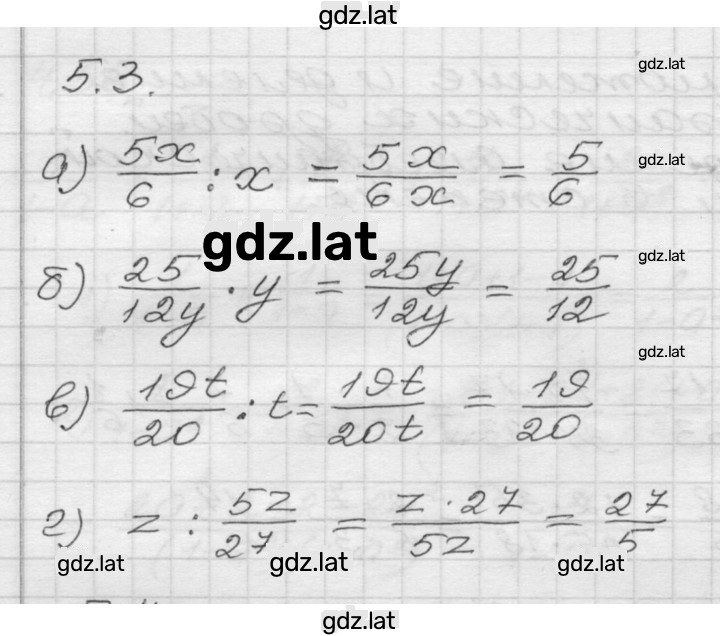 gdz.lat
5.3.
gdz.lat
а) 5x/6 : x = 5x/6x = 5/6
gdz.lat
gdz.lat
б) 25/12y · y = 25y/12y = 25/12
gdz.lat
gdz.lat
в) 19t/20 : t = 19t/20t = 19/20
г) z : 5z/27 = z · 27/5z = 27/5
gdz.lat gdz.lat gdz.lat
gdz.lat